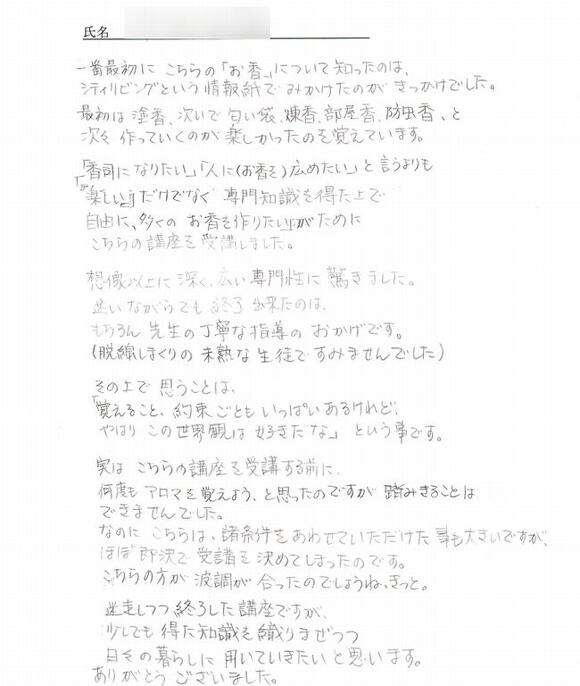 氏名
一番最初に こちらの「お香」について知ったのは、
シティリビングという情報紙で みかけたのが きっかけでした。
最初は 塗香、次いで 匂い袋、煉香、部屋香、防虫香、と
次々 作っていくのが 楽しかったのを 覚えています。
「香司になりたい」「人に(お香を)広めたい」と 言うよりも
「"楽しい"」だけでなく 専門知識を得た上で
自由に、多くの お香を作りたい」が ために
こちらの講座を 受講しました。
想像以上に 深く、広い 専門性に 驚きました。
迷いながらでも 終了 出来たのは、
もちろん 先生の丁寧な指導の おかげです。
(脱線しまくりの 未熟な生徒ですみませんでした)
その上で 思うことは、
「覚えること、約束ごともいっぱいあるけれど、
やはり この世界観は 好きだな」 という事です。
実は こちらの講座を受講する前に、
何度も アロマを覚えよう、と思ったのですが 踏みきることは
できませんでした。
なのに こちらは、諸条件をあわせていただけた 事も大きいですが、
ほぼ 即決で 受講を 決めてしまったのです。
こちらの方が 波調が 合ったのでしょうね、きっと。
迷走しつつ 終了した講座ですが、
少しでも 得た知識を 織りまぜつつ
日々の暮らしに 用いていきたいと思います。
ありがとう ございました。